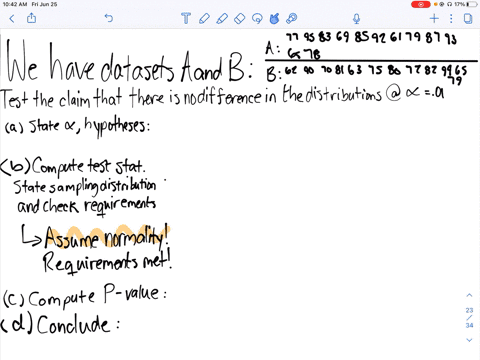 10:42 AM Fri Jun 25
17%
77 95 83 69 85 92 61 79 87 93
A: 65 78
We have datasets A and B:
B: 62 90 70 81 63 75 80 72 82 94 65
79
Test the claim that there is no difference in the distributions @ α = .01
(a) State α, hypotheses:
(b) Compute test stat.
State sampling distribution
and check requirements
↳ Assume normality!
Requirements met!
(c) Compute P-value:
(d) Conclude:
23
/
34